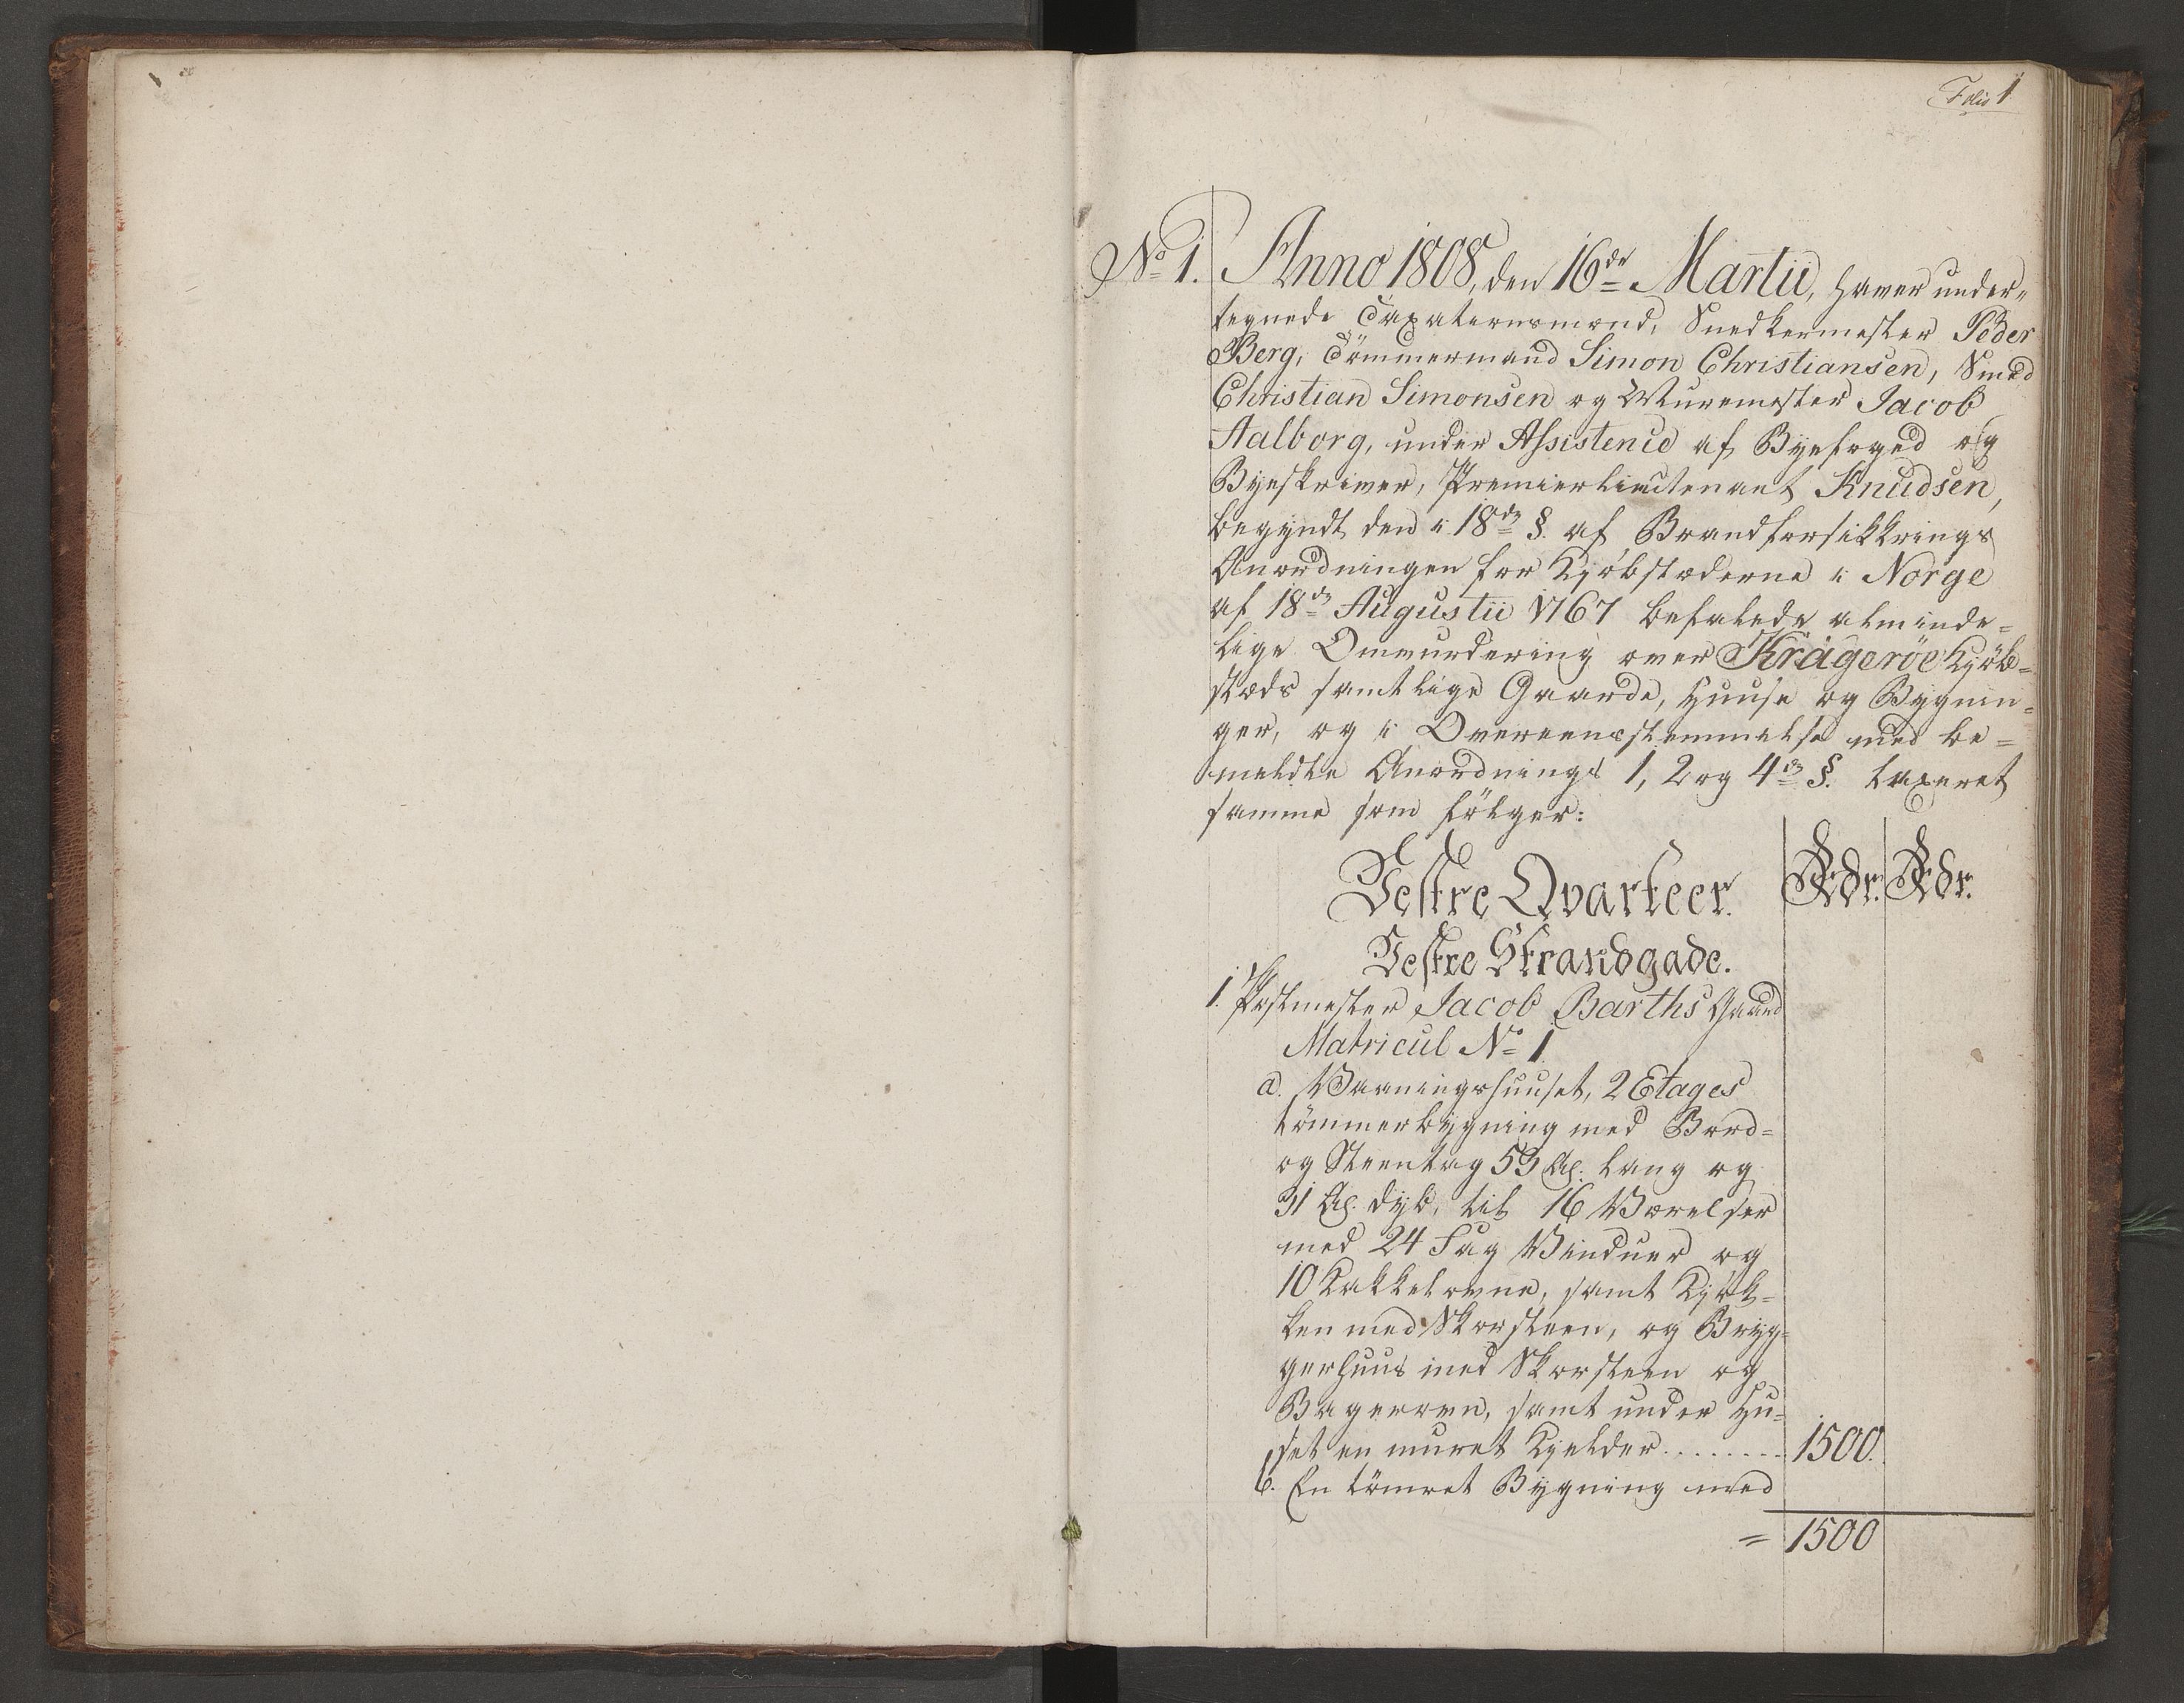 Folio 1
No 1. Anno 1808, den 16de Martii, haver under-
tegnede Taxationsmænd, Snedkermester Peder
Berg, Tömmermand Simon Christiansen, Smed
Christian Simonsen og Muremester Jacob
Aalborg, under Assistence af Byefoged og
Byeskriver, Premierlieutenant Knudsen,
begyndt den i 18de §. af Brandforsikkrings
Anordningen for Kjöbstæderne i Norge
af 18de Augustii 1767 befalede alminde-
lige Omvurdering over Krageröe Kjöb-
stæds samtlige Gaarde, Huuse og Bygnin-
ger, og i Overeensstemmelse med be-
meldte Anordnings 1, 2 og 4de §. taxeret
samme som fölger:
Vestre Qvarteer. Rdr. Rdr.
Vestre Strandgade.
1. Postmester Jacob Barths Gaard
Matricul No 1
a. Vaaningshuuset, 2 Etages
tömmerbygning med Bord-
og Steentag 53 Al. lang og
31 Al. dyb, til 16 Værelser
med 24 Fag Vinduer og
10 Kakkelovne, samt Kjök-
ken med Skorsteen, og Bryg-
gerhuus med Skorsteen og
Bagerovn, samt under Hu-
set en muret Kjelder........ 1500.
b. En tömret Bygning med
= 1500